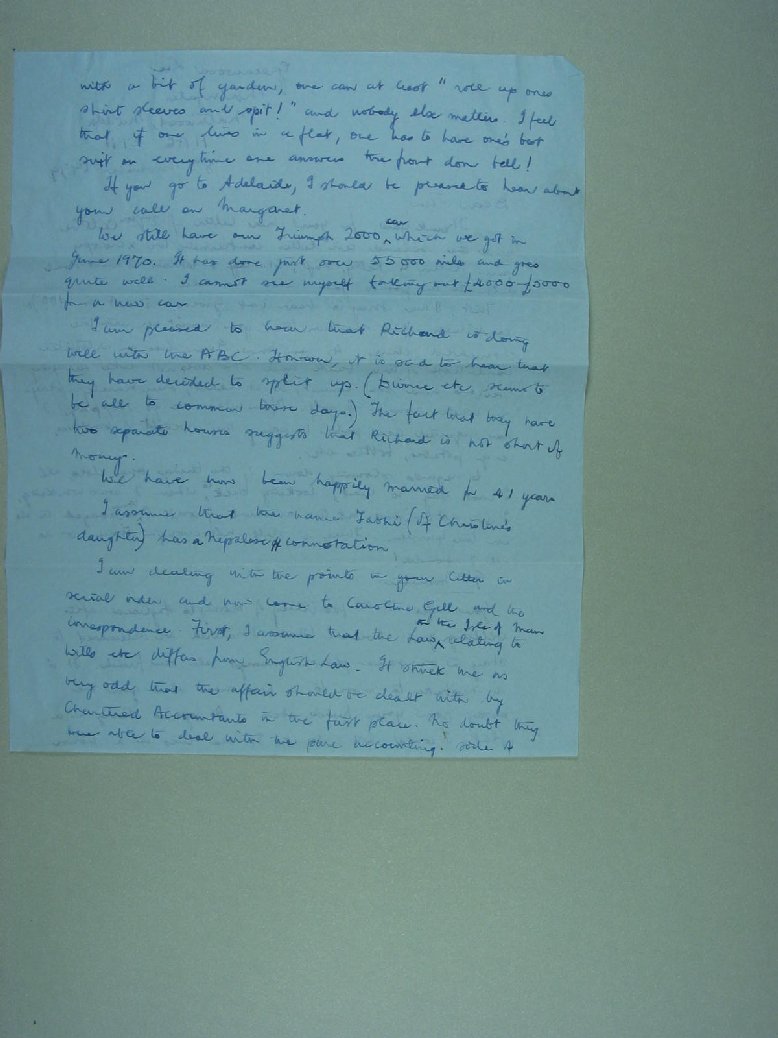 with a bit of garden, one can at least "roll up ones
shirt sleeves and spit!" and nobody else matters. I feel
that if one lives in a flat, one has to have one's best
suit on everytime one answers the front door bell!
If you go to Adelaide, I should be pleased to hear about
your call on Margaret.
We still have our Triumph 2000 car which we got in
June 1970. It has done just over 55000 miles and goes
quite well. I cannot see myself forking out £4000-£5000
for a new car
I am pleased to hear that Richard is doing
well with the ABC. However, it is sad to hear that
they have decided to split up. (Divorce etc seems to
be all to common these days.) The fact that they have
two separate houses suggests that Richard is not short of
money.
We have now been happily married for 41 years
I assume that the name (of Christine's
daughter) has a Nepalese connotation
I am dealing with the points in your letter in
serial order and now come to Caroline Gell and the
correspondence. First, I assume that the Law in the Isle of Man relating to
wills etc differs from English Law. It struck me as
very odd that the affair should be dealt with by
Chartered Accountants in the first place. No doubt they
were able to deal with the pure accounting side of